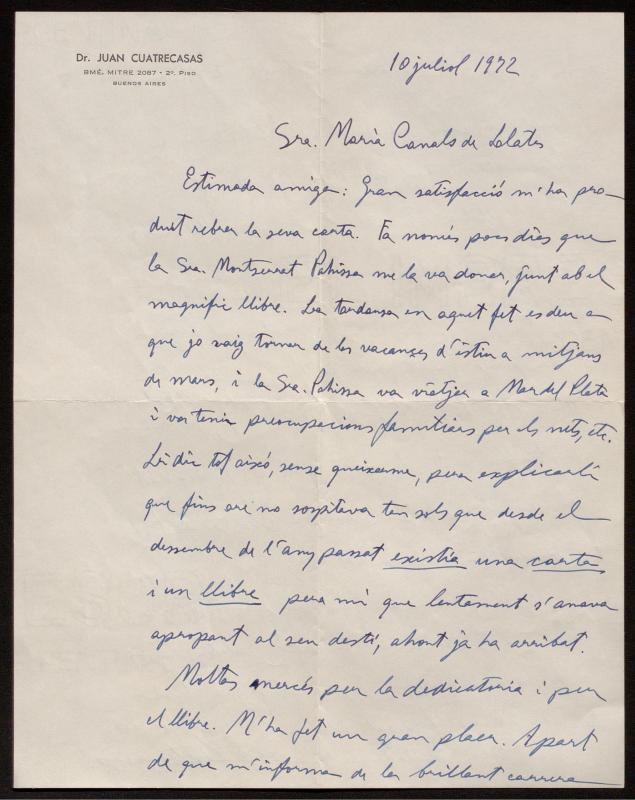 Dr. JUAN CUATRECASAS
BMÉ. MITRE 2087 - 2º. PISO
BUENOS AIRES
10 juliol 1972
Sra. Maria Canals de
Estimada amiga: Gran satisfacció m'ha pro-
duit rebrer la seva carta. Fa només pocs dies que
la Sra. Montserrat Pahissa me la va donar, junt ab el
magnific llibre. La tardansa en aquet fet es deu a
que jo vaig tornar de les vacanzes d'éstiu a mitjans
de mars, i la Sra. Pahissa va viatjar a Mar del Plata
i va tenir preocupacions familiars per els nets, etc.
Li dic tot aixó, sense queixarme, pera explicarli
que fins are no sospitava tan sols que desde el
dessembre de l'any passat existia una carta
i un llibre pera mi que lentament s'anava
apropant al seu destí, ahont ja ha arribat.
Moltas mercés per la dedicatoria i per
el llibre. M'ha fet un gran plaer. Apart
de que m'informa de la brillant carrera